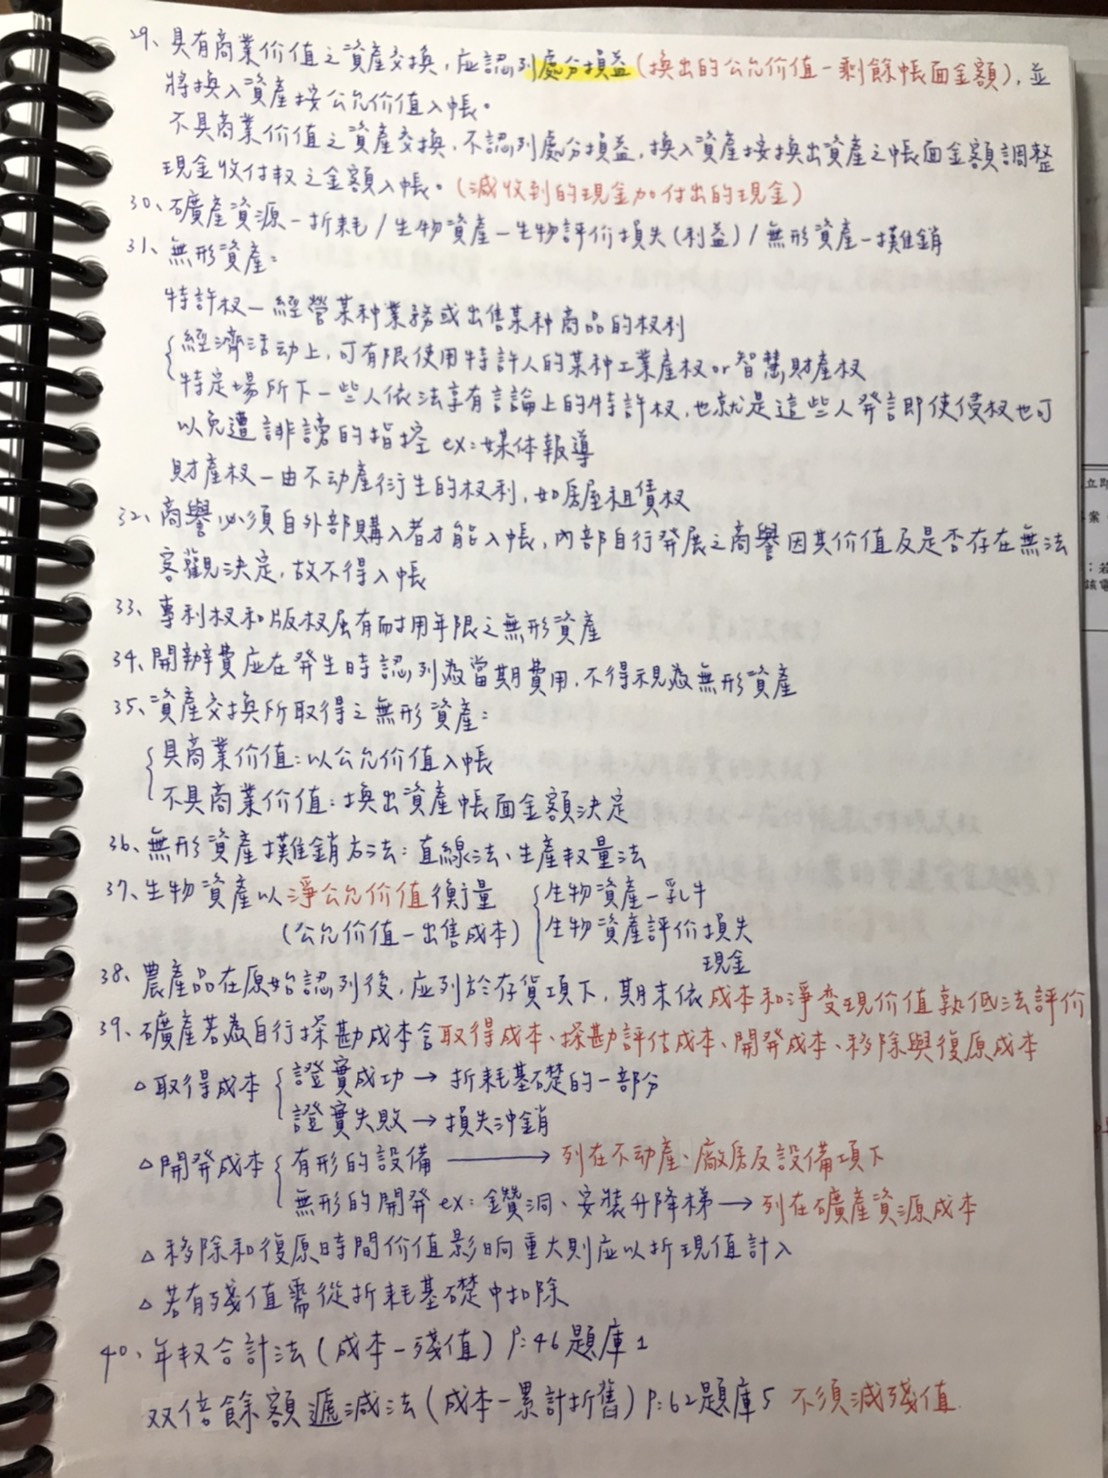 29、具有商業价值之資產交換，应認列處分損益(換出的公允价值－剩餘帳面金額)，並
將換入資產按公允价值入帳。
不具商業价值之資產交換，不認列處分損益，換入資產按換出資產之帳面金額調整
現金收付权之金額入帳。(減收到的現金加付出的現金)
30、礦產資源－折耗/生物資產－生物評价損失(利益)/無形資產－攤銷
31、無形資產：
特許权－經營某种業務或出售某种商品的权利
經濟活动上，可有限使用特許人的某种工業產权or智慧財產权
特定場所下一些人依法享有言論上的特許权，也就是這些人発言即使侵权也可
以免遭誹謗的指控 ex：媒体報導
財產权－由不动產衍生的权利，如房屋租賃权
32、商譽必須自外部購入者才能入帳，內部自行発展之商譽因其价值及是否存在無法
客觀決定，故不得入帳
33、專利权和版权虽有耐用年限之無形資產
34、開辦費应在発生時認列為當期費用，不得視為無形資產
35、資產交換所取得之無形資產：
具商業价值：以公允价值入帳
不具商業价值：換出資產帳面金額決定
36、無形資產攤銷方法：直線法、生產权量法
37、生物資產以淨公允价值衡量
(公允价值－出售成本)
生物資產－乳牛
生物資產評价損失
現金
38、農產品在原始認列後，应列於存貨項下，期末依成本和淨变現价值孰低法評价
39、礦產若為自行探勘成本含取得成本、探勘評估成本、開発成本、移除與復原成本
△取得成本
證實成功→折耗基礎的一部分
證實失敗→損失沖銷
△開発成本
有形的設備→列在不动產、廠房及設備項下
無形的開発ex：鑽洞、安裝升降梯→列在礦產資源成本
△移除和復原時間价值影响重大則应以折現值計入
△若有殘值需從折耗基礎中扣除
40、年权合計法(成本－殘值)P:46題庫1
双倍餘額遞減法(成本－累計折舊)P:62題庫5 不須減殘值